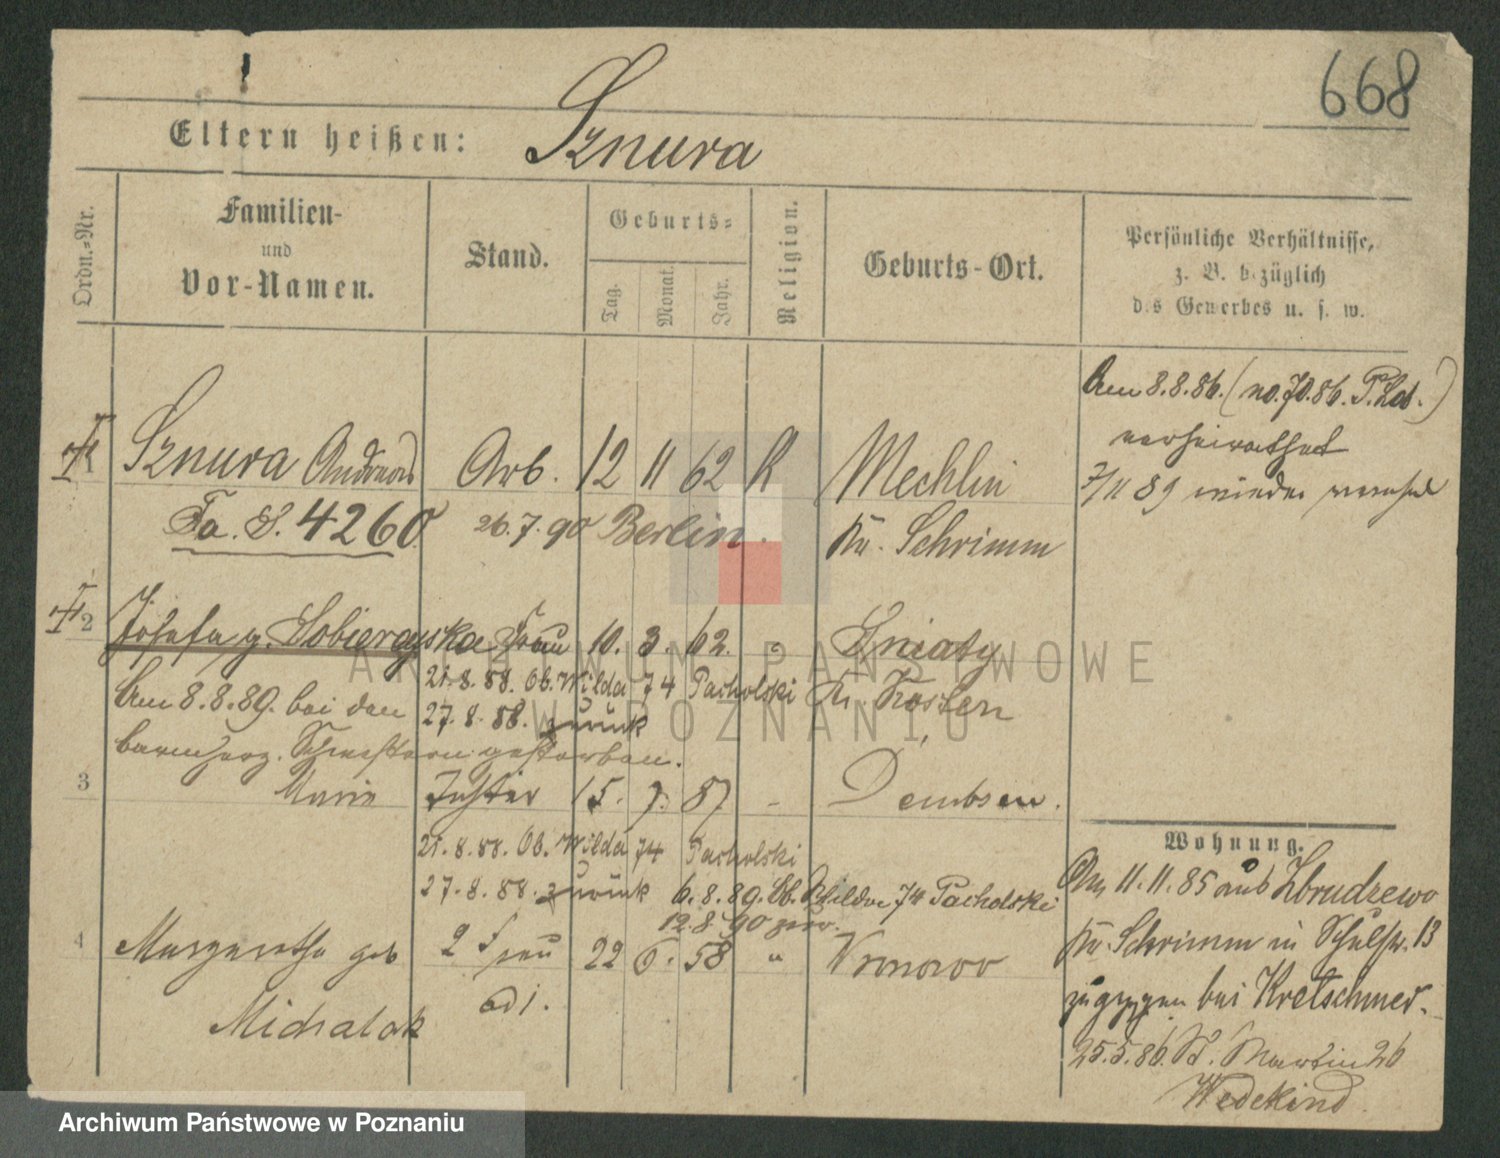 668
Eltern heißen: Sznura
Ordn.=Nr.
Familien-
und
Vor-Namen.
Stand.
Geburts=
Tag.
Monat.
Jahr.
Religion.
Geburts-Ort.
Persönliche Verhältnisse,
z. B. bezüglich
des Gewerbes u. s. w.
Am 8.8.86. (no. 70.86. P.
verheirathet
7/11 89 wieder
1 Sznura Andreas Arb. 12 11 62 K Mechlin
Fa. S. 4260 26.7.90 Berlin. Kr. Schrimm
2 Josefa g. Sobierayska Frau 10. 3. 62. " Gniaty
21.8.88. Ob. Wilda 74 Pacholski Kr. Kosten
Am 8.8.89. bei den
27.8.88. zurück
barmherz. Schwestern gestorben.
3 Marie Tochter 15. 7. 87 - Dembsen.
21.8.88. Ob. Wilda 74 Pacholski
27.8.88. zurück 6.8.89. Ob. Wilda 74 Pacholski
12.8.90 zur.
4 Margaretha geb 2 Frau 22 6. 58 " Wronowo
Michalak adj.
Wohnung.
Am 11.11.85 aus Zbrudzewo
Kr. Schrimm in Schulstr. 13
zugezogen bei Kretschmer.
25.5.86. St. Martin 26
Wedekind
ARCHIWUM PAŃSTWOWE
W POZNANIU
Archiwum Państwowe w Poznaniu